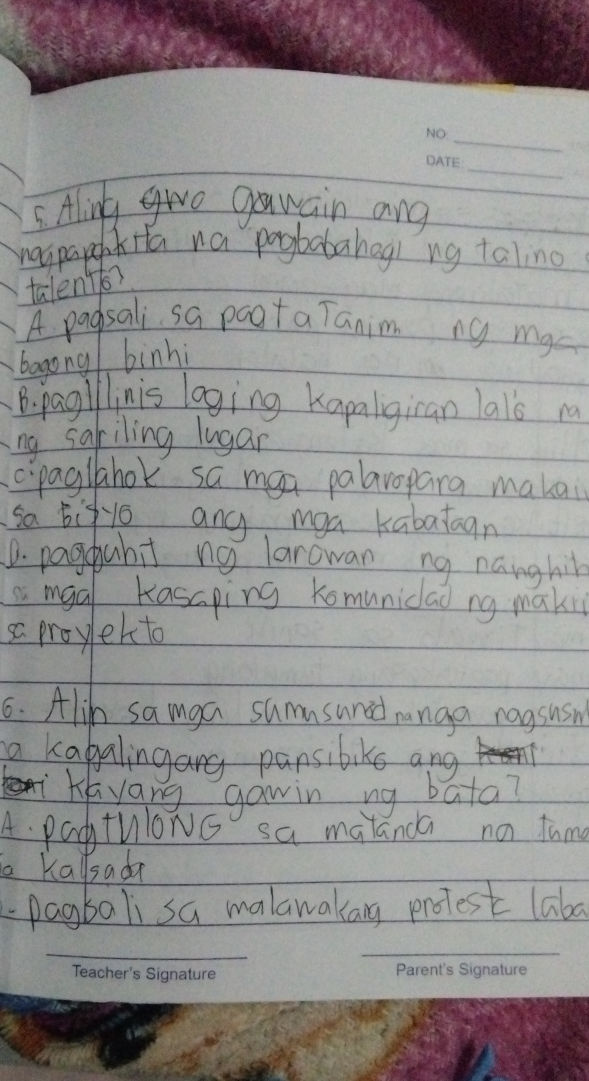 NO
DATE
5. Aling gawain ang
na pagbabahagi ng talino
talento?
A. pagsali sa pagtaTanim ng mga
bagong binhi
B. paglilinis laging kapaligiran lalo na
ng sariling lugar
C. paglahok sa mga palaropara makai
sa bisyo ang mga kabataan
D. pagguhit ng larawan ng nanghih
mga kasaping komunidad ng maki
sa proyekto
6. Alin samga sumusunod nanga
na kagalingang pansibiko ang
kayang gawin ng bata?
A. pagtULONG sa matanda na tuma
sa kalsada
pagsali sa malawakang protest laba
Teacher's Signature
Parent's Signature